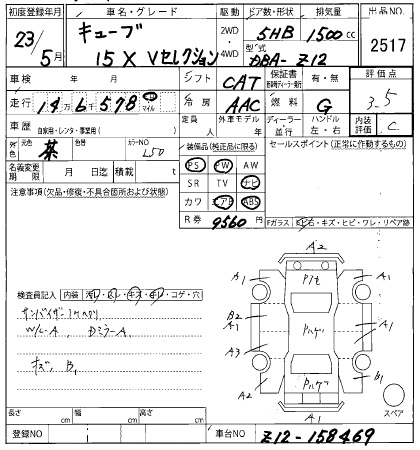 初度登録年月 車名・グレード 駆動 ドア数・形状 排気量 出品NO.
23/5月 キューブ 15X Vセレクション 2WD・4WD 5HB 1500cc 2517
型式 DBA-Z12
車検 年 月 シフト CAT 保証書 有・無 評価点
走行 14万6千578 km マイル 冷房 AAC 燃料 G 3.5
車歴 自家用・レンタ・事業用( ) 定員 人 外車モデル 年 ディーラー・並行 ハンドル 左・右 内装評価 C
外色 元色 茶 色替 カラーNO L50 装備品(純正品に限る) セールスポイント(正常に作動するもの)
名義変更期限 月 日迄 積載 t PS PW AW
注意事項(欠品・修復・不具合箇所および状態) SR TV ナビ
カワ エアB ABS
R券 9560円 Fガラス ヒビ石・キズ・ヒビ・ワレ・リペア跡
検査員記入 内装 汚レ・スレ・キズ・キレ・コゲ・穴
サンバイザー
W/L-A DミラーA
キズ、B1
A2
A1 A1
B2
A1 A1
A3
A2 B1
A1
スペア
長さ cm 幅 cm 高さ cm
登録NO 車台NO Z12-158469